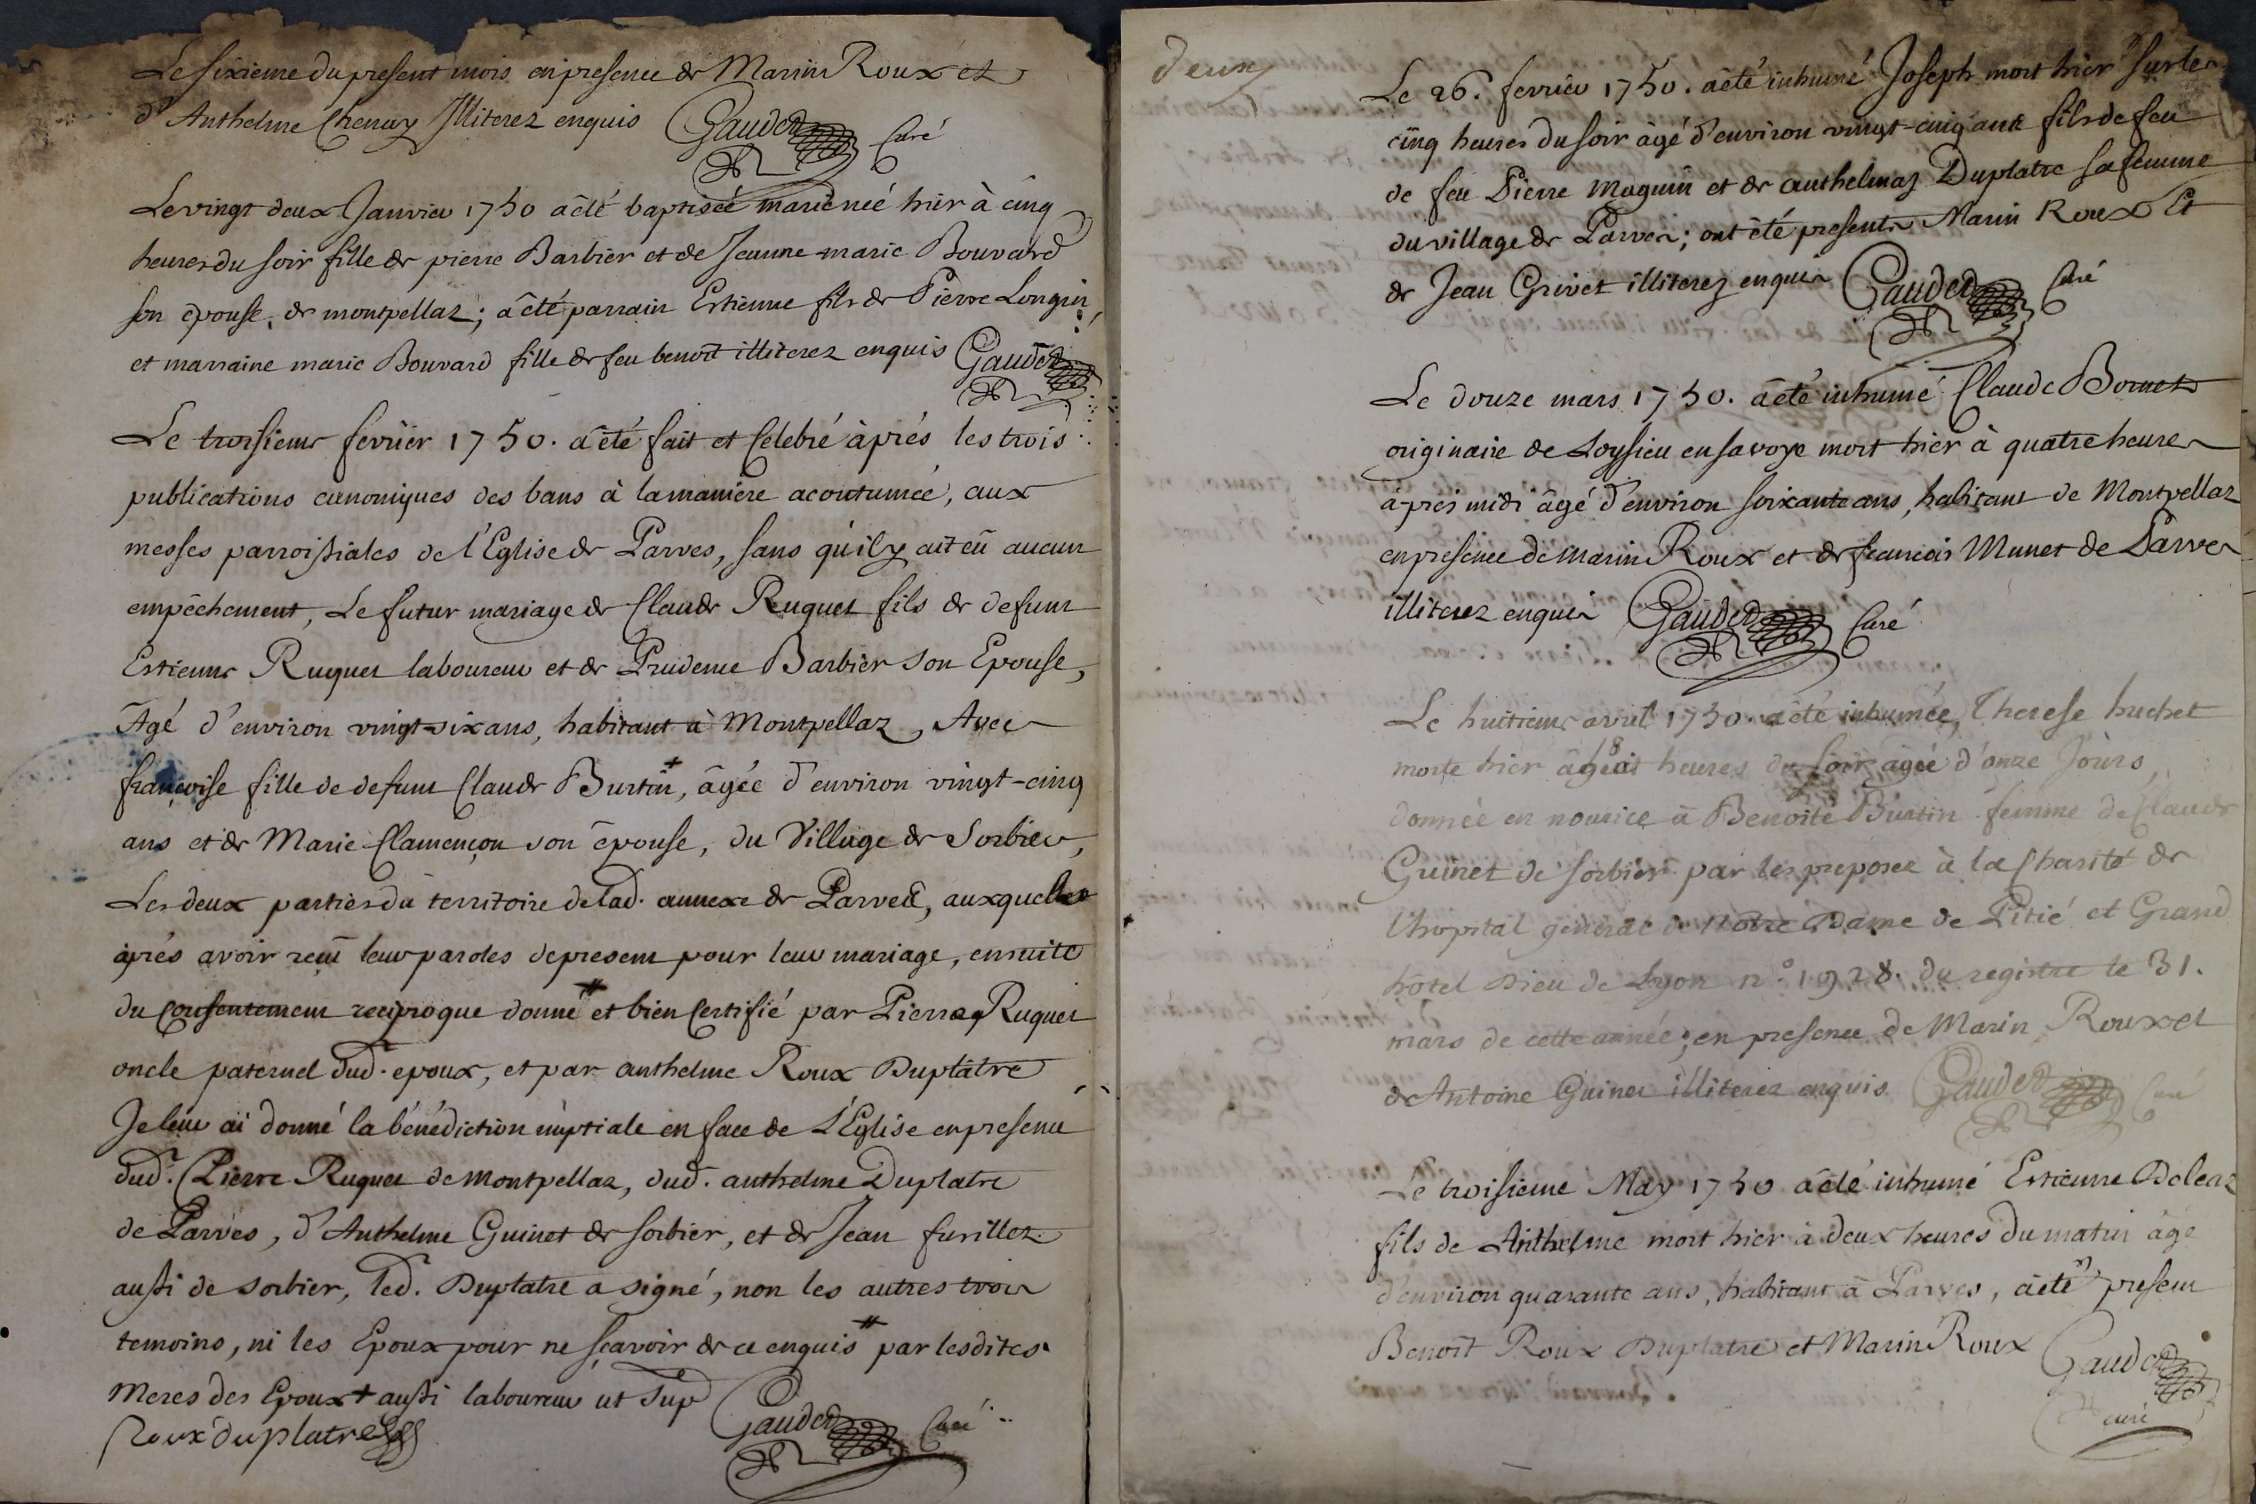 Le sixieme du present mois en presence de Marin Roux et
d'Anthelme Chenuy Illiterez enquis Gaudet Curé
Le vingt deux Janvier 1750 a êté baptisée marie née hier à cinq
heures du soir fille de pierre Barbier et de Jeanne marie Bouvard
son epouse, de montpellaz; a êté parrain Estienne fils de Pierre Longin,
et marraine marie Bouvard fille de feu benoît illiterez enquis Gaudet
Le troisieme fevrier 1750. a êté fait et Celebré àprés les trois
publications canoniques des bans à la maniere acoutumée, aux
messes parroissiales de l'Eglise de Parves, sans qu'il y ait eû aucun
empêchement, Le futur mariage de Claude Ruquet fils de defunt
Estienne Ruquet laboureur et de Prudence Barbier son Epouse,
Agé d'environ vingt-six ans, habitant à Montpellaz, Avec
françoise fille de defunt Claude Burtin +, âgée d'environ vingt-cinq
ans et de Marie Clamençon son êpouse, du Village de Sorbier,
Les deux parties du territoire de lad. annexe de Parves, auxquelles
àprés avoir reçû leur paroles de present pour leur mariage, ensuite
du Consentement reciproque donné # et bien Certifié par Pierre Ruquet
oncle paternel dud. epoux, et par anthelme Roux Duplâtre
Je leur ai donné la bénédiction nuptiale en face de L'Eglise en presence
dud. Pierre Ruquet de Montpellaz, dud. anthelme Duplatre
de Parves, d'Anthelme Guinet de sorbier, et de Jean furillet
aussi de sorbier, led. Duplatre a signé, non les autres trois
temoins, ni les Epoux pour ne sçavoir de ce enquis # par lesdites
Meres des Epoux + aussi laboureur ut Sup Gaudet Curé
Roux duplatre
deux
Le 26. fevrier 1750. a êté inhumé Joseph mort hier sur les
cinq heures du soir âgé d'environ vingt-cinq ans fils de feu
de feu Pierre Maguin et de anthelmaz Duplatre sa femme
du village de Parves; ont êté presents Marin Roux Et
de Jean Grivet illiterez enquis Gaudet Curé
Le douze mars 1750. a êté inhumé Claude Bornet
originaire de Loysieu en savoye mort hier à quatre heures
àprés midi âgé d'environ soixante ans, habitant de Montpellaz
en presence de marin Roux et de francois Munet de Parves
illiterez enquis Gaudet Curé
Le huitieme avril 1750. a êté inhumée, Therese huchet
morte hier à 8 heures du soir âgée d'onze Jours,
donnée en nourice à Benoite Burtin femme de Claude
Guinet de sorbier par les preposez à la Charité de
l'hopital général de Notre Dame de Pitié et Grand
hôtel Dieu de Lyon n.º 1928. du registre le 31.
mars de cette année; en presence de Marin Roux et
de Antoine Guinet illiterez enquis Gaudet Curé
Le troisieme May 1750 a êté inhumé Estienne Deleaz
fils de Anthelme mort hier à deux heures du matin âgé
d'environ quarante ans, habitant à Parves, a êté present
Benoît Roux Duplatre et Marin Roux Gaudet
curé